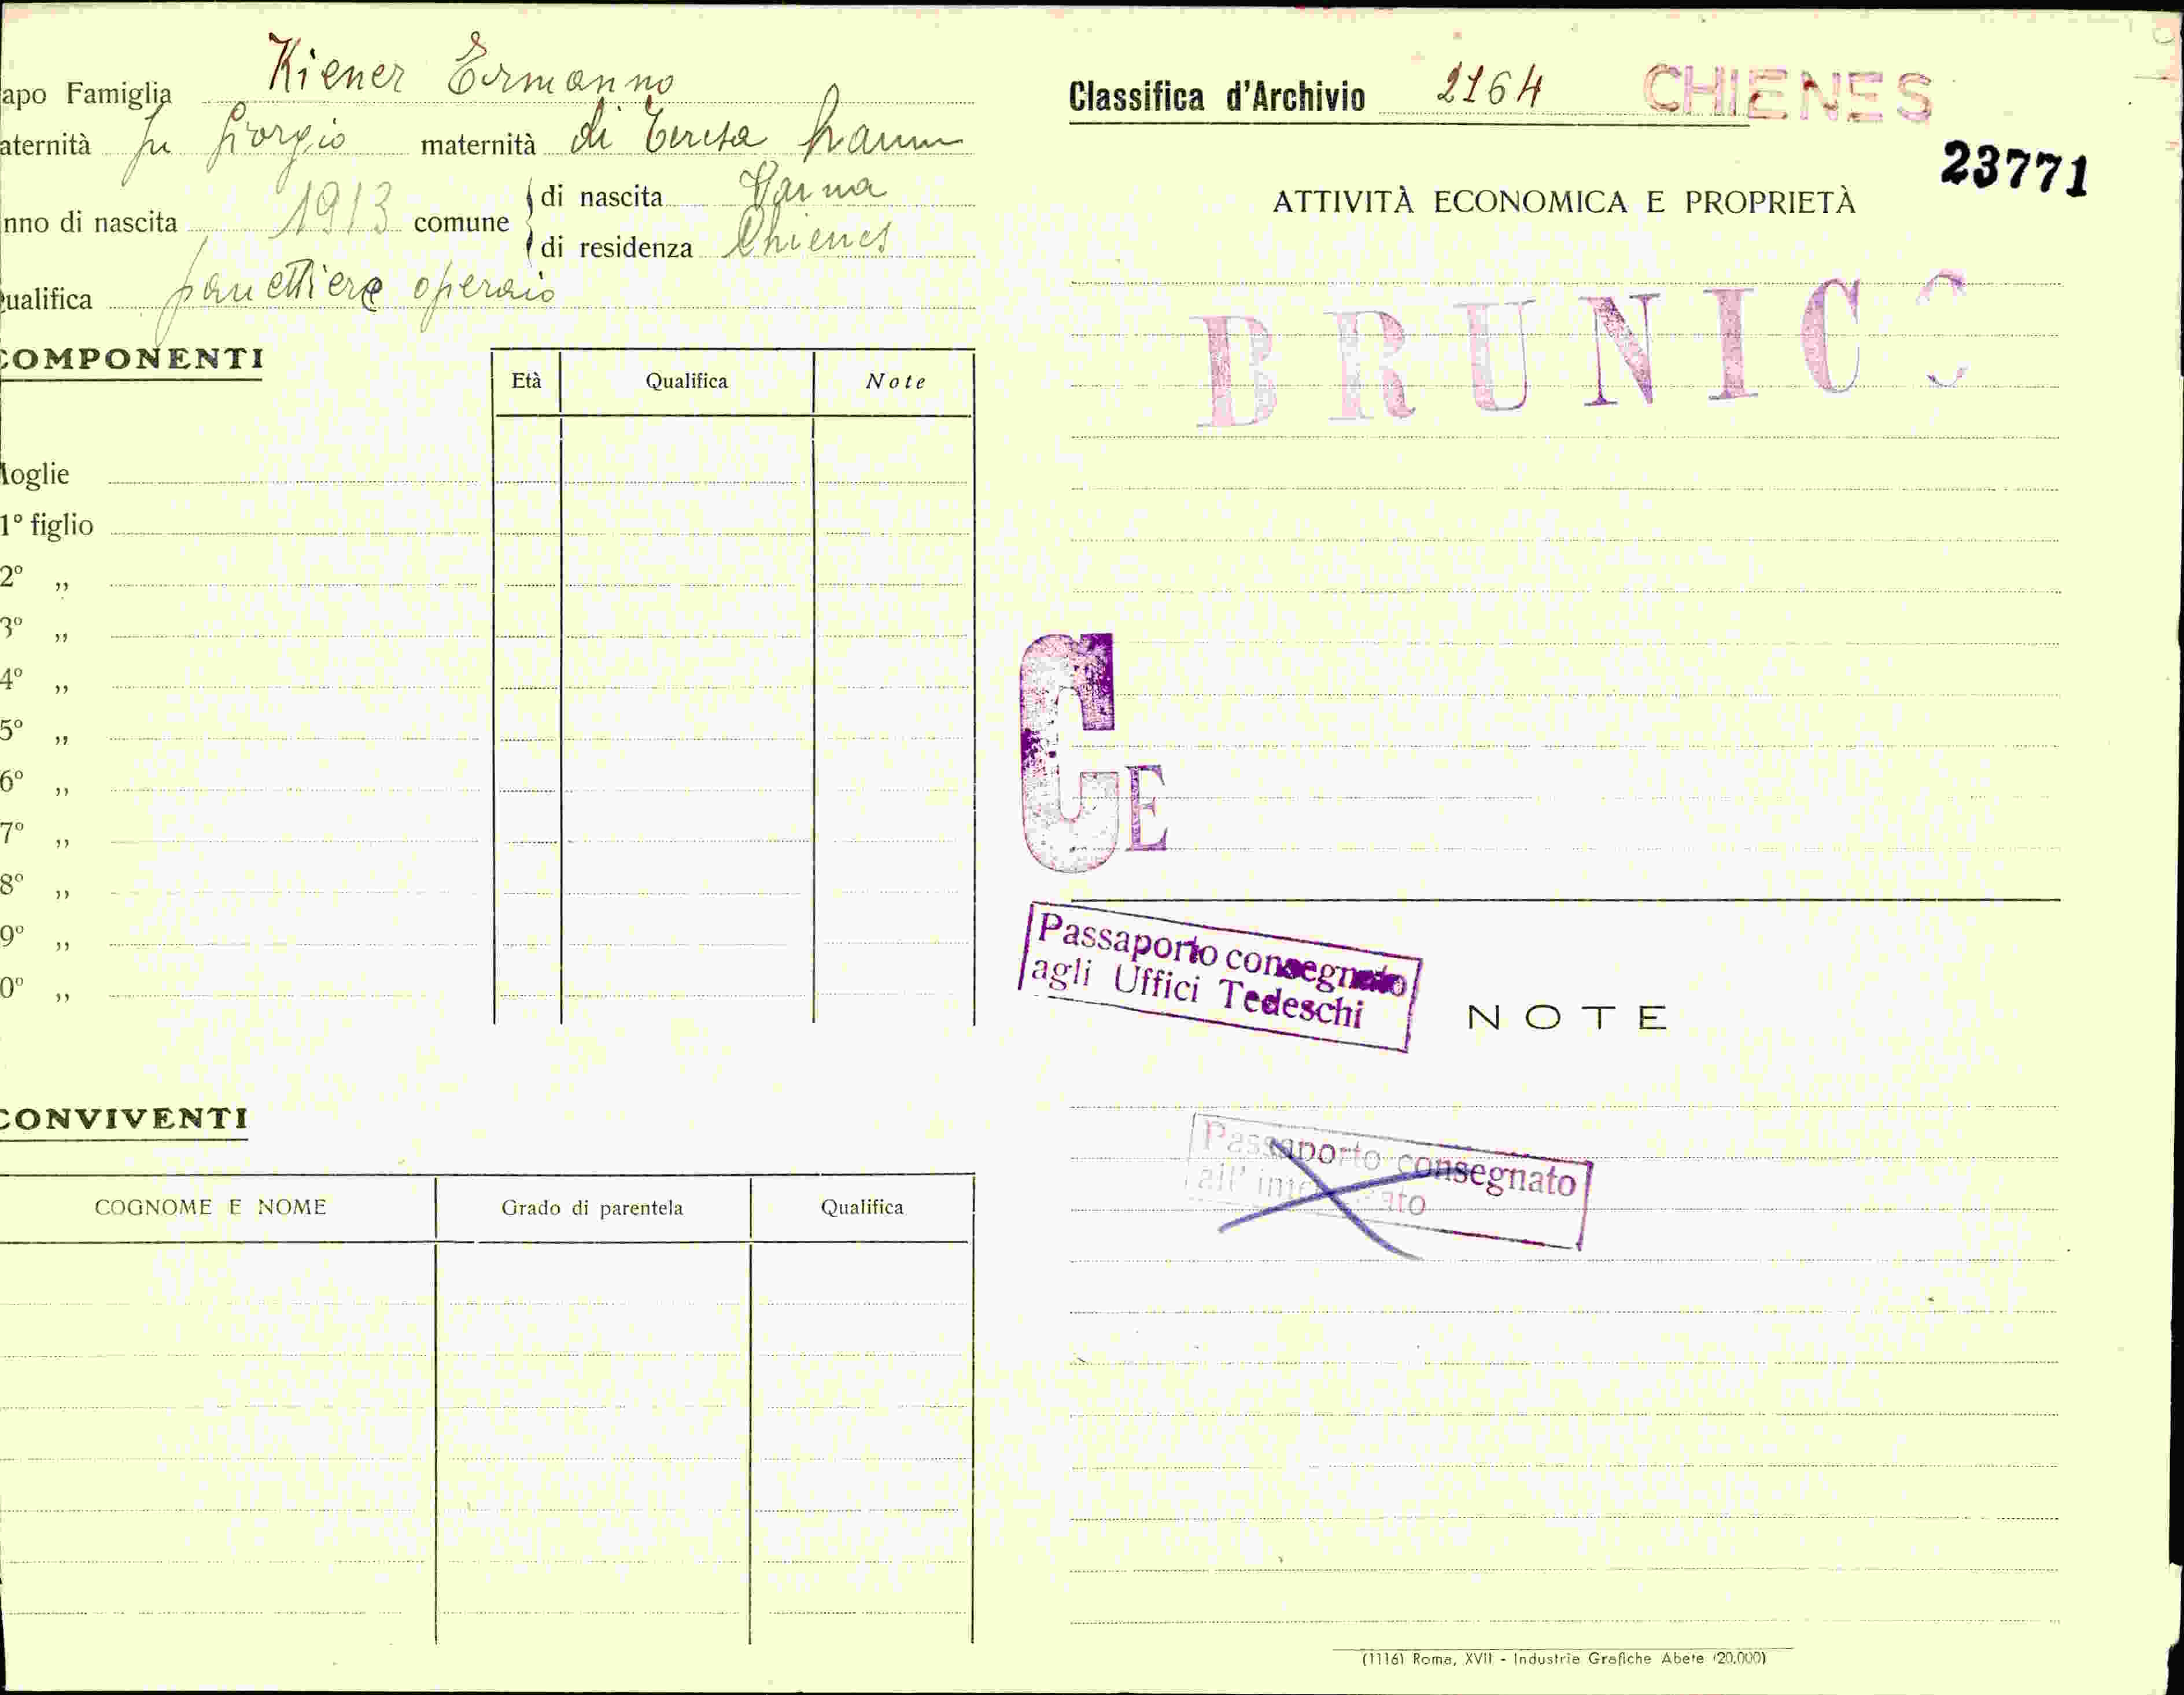 apo Famiglia Kiener Ermanno
aternità fu Giorgio maternità di Teresa
nno di nascita 1913 comune
di nascita Varna
di residenza Chienes
ualifica panettiere operaio
COMPONENTI
Età Qualifica Note
Moglie
1º figlio
2º „
3º „
4º „
5º „
6º „
7º „
8º „
9º „
0º „
CONVIVENTI
COGNOME E NOME Grado di parentela Qualifica
Classifica d'Archivio 2164 CHIENES
23771
ATTIVITÀ ECONOMICA E PROPRIETÀ
BRUNICO
GE
Passaporto consegnato
agli Uffici Tedeschi
NOTE
Passaporto consegnato
all' interessato
(1116) Roma, XVII - Industrie Grafiche Abete (20.000)